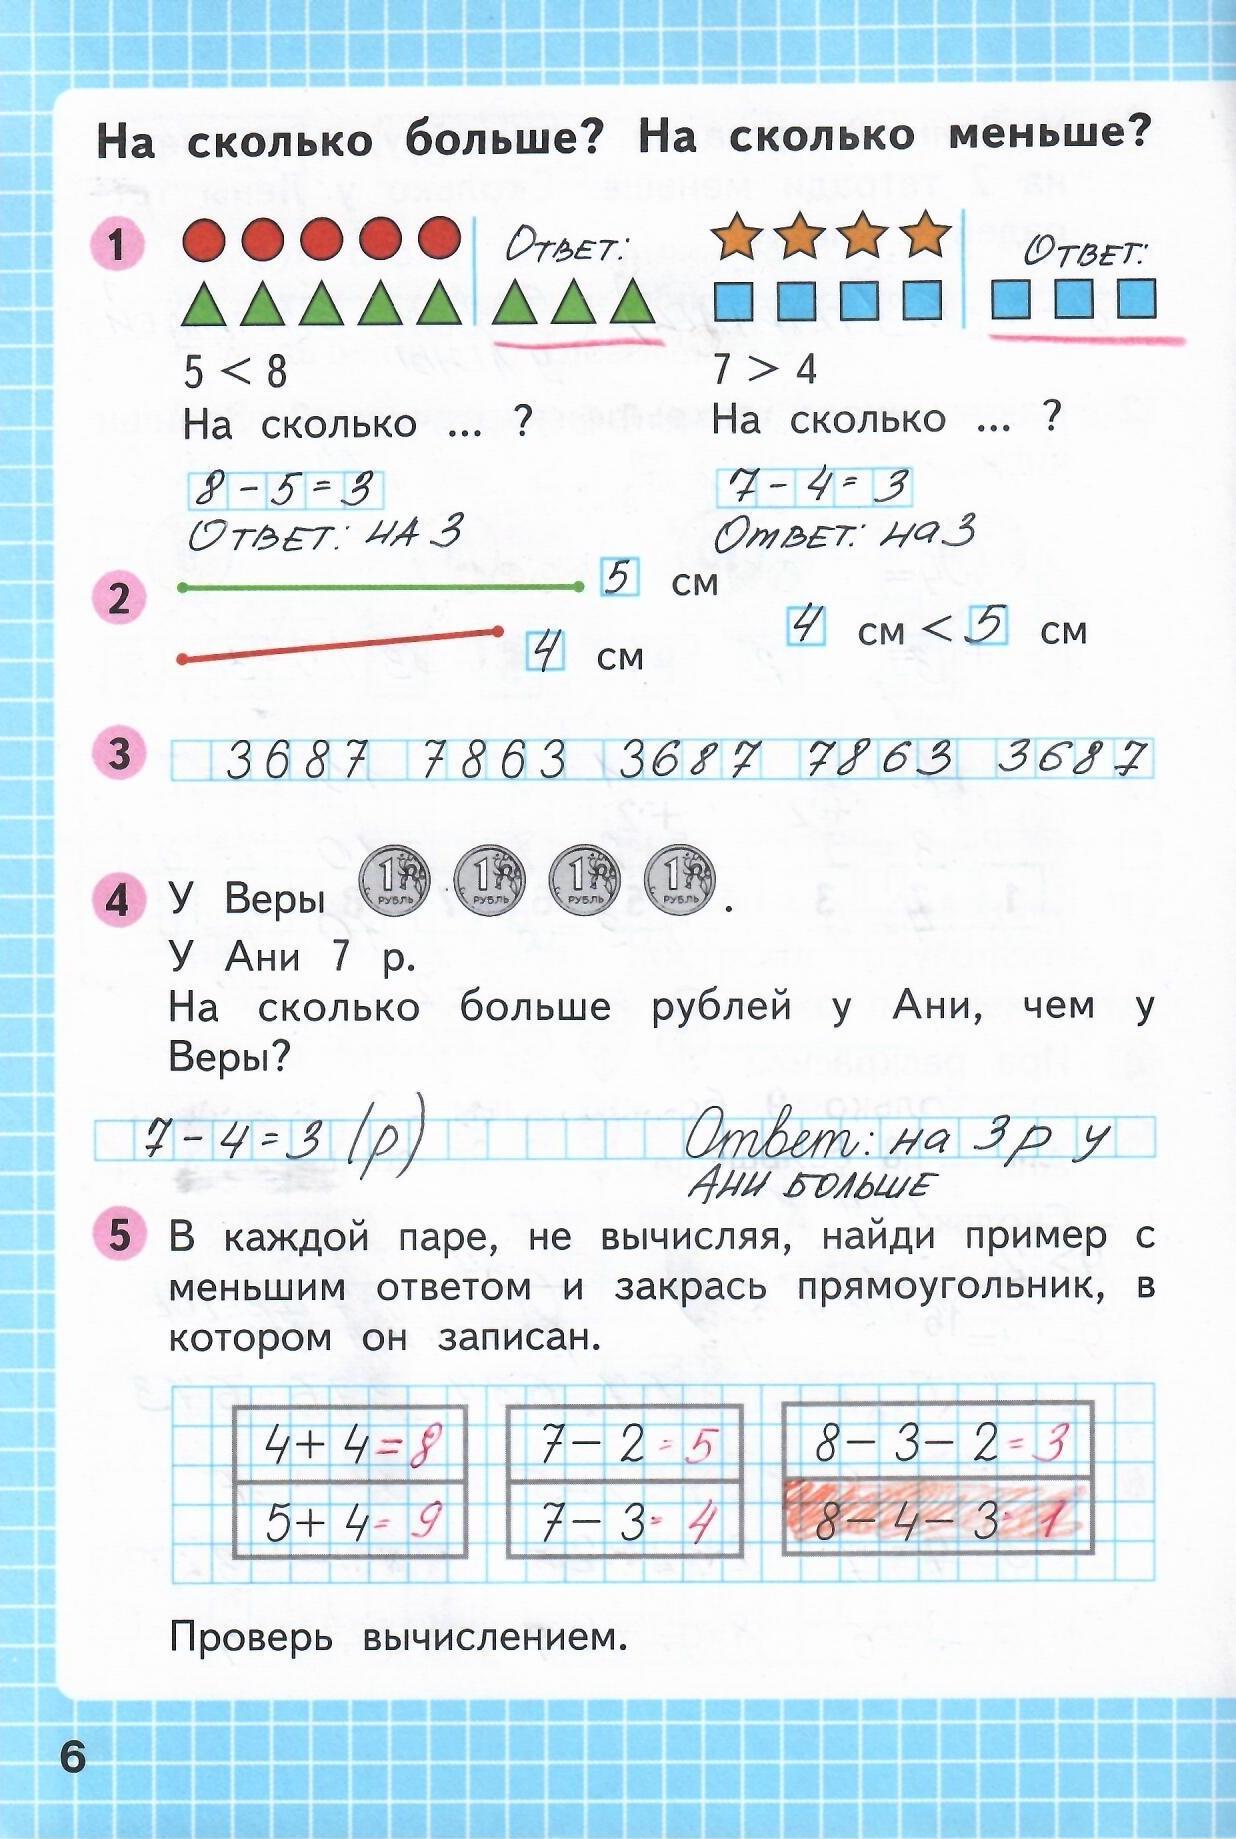 На сколько больше? На сколько меньше?
1
Ответ:
Ответ:
5 < 8
7 > 4
На сколько ... ?
На сколько ... ?
8 - 5 = 3
7 - 4 = 3
Ответ: на 3
Ответ: на 3
2
5 см
4 см < 5 см
4 см
3
3687 7863 3687 7863 3687
4
У Веры 1 РУБЛЬ 1 РУБЛЬ 1 РУБЛЬ 1 РУБЛЬ .
У Ани 7 р.
На сколько больше рублей у Ани, чем у
Веры?
7 - 4 = 3 (р) Ответ: на 3 р у
Ани больше
5
В каждой паре, не вычисляя, найди пример с
меньшим ответом и закрась прямоугольник, в
котором он записан.
4 + 4 = 8
7 - 2 = 5
8 - 3 - 2 = 3
5 + 4 = 9
7 - 3 = 4
8 - 4 - 3 = 1
Проверь вычислением.
6